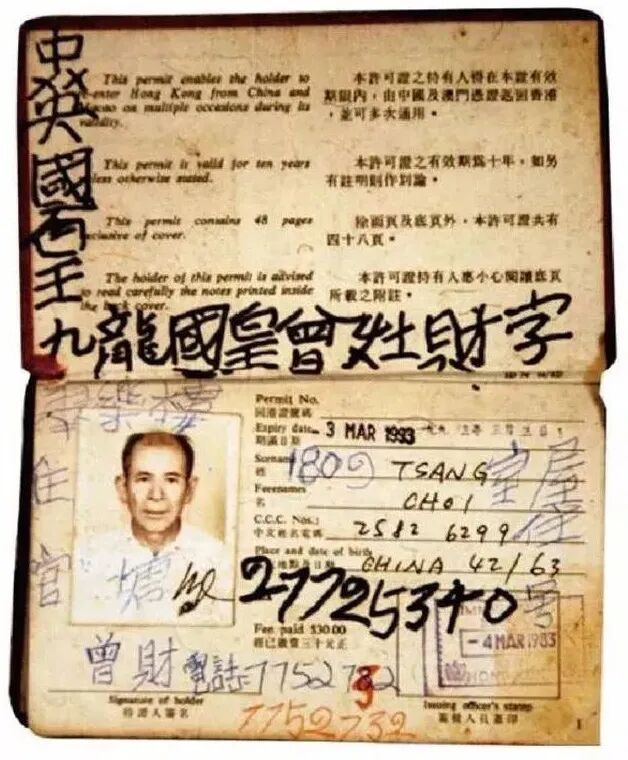 This permit enables the holder to
re-enter Hong Kong from China and
Macao on multiple occasions during its
validity.
本許可證之持有人得在本證有效
期限內，由中國及澳門憑證返回香港
，並可多次通用。
This permit is valid for ten years
unless otherwise stated.
本許可證之有效期爲十年，如另
有註明則作別論。
This permit contains 48 pages
exclusive of cover.
除面頁及底頁外，本許可證共有
四十八頁。
The holder of this permit is advised
to read carefully the notes printed inside
the back cover.
本許可證持有人應小心閱讀底頁
所載之附註。
英國
王
九龍國皇曾姓財字
樂樓
住
官
塘
Permit No.
回港證號碼
Expiry date 3 MAR 1993
期滿日期
Surname TSANG
姓
1809
室
Forenames CHOI
名
C.C.C. Nos.: 2582 6299
中文姓名電碼
居住
Place and date of birth CHINA 42/63
出生地點及日期
27725340
號
Fee paid $30.00
經已繳費三十元正
-4 MAR 1983
曾財
7752732
7752732
Signature of holder
持證人簽名
Issuing officer's stamp
簽發人員蓋印
1